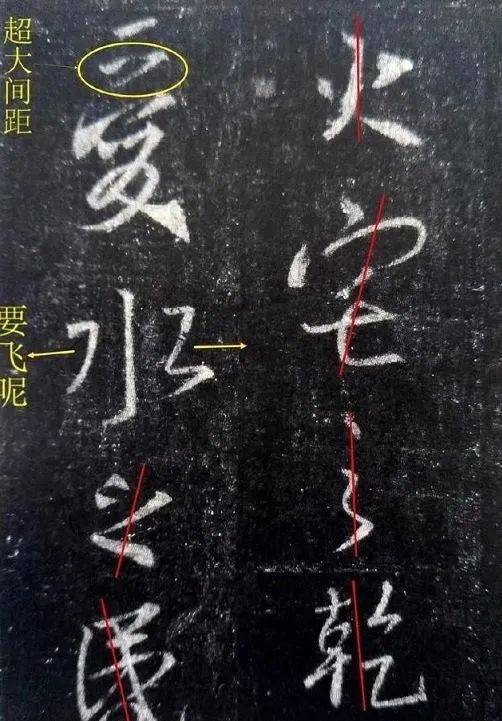 火宅之乾
愛水之昬
超大间距
要飞呢